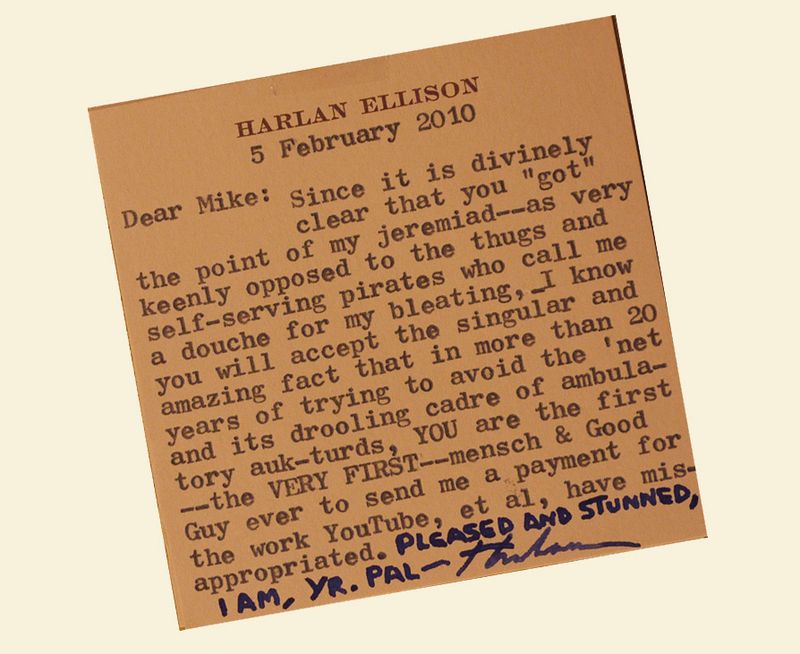 HARLAN ELLISON
5 February 2010
Dear Mike: Since it is divinely
clear that you "got"
the point of my jeremiad--as very
keenly opposed to the thugs and
self-serving pirates who call me
a douche for my bleating, I know
you will accept the singular and
amazing fact that in more than 20
years of trying to avoid the 'net
and its drooling cadre of ambula-
tory auk-turds, YOU are the first
--the VERY FIRST--mensch & Good
Guy ever to send me a payment for
the work YouTube, et al, have mis-
appropriated. PLEASED AND STUNNED,
I AM, YR. PAL— Harlan